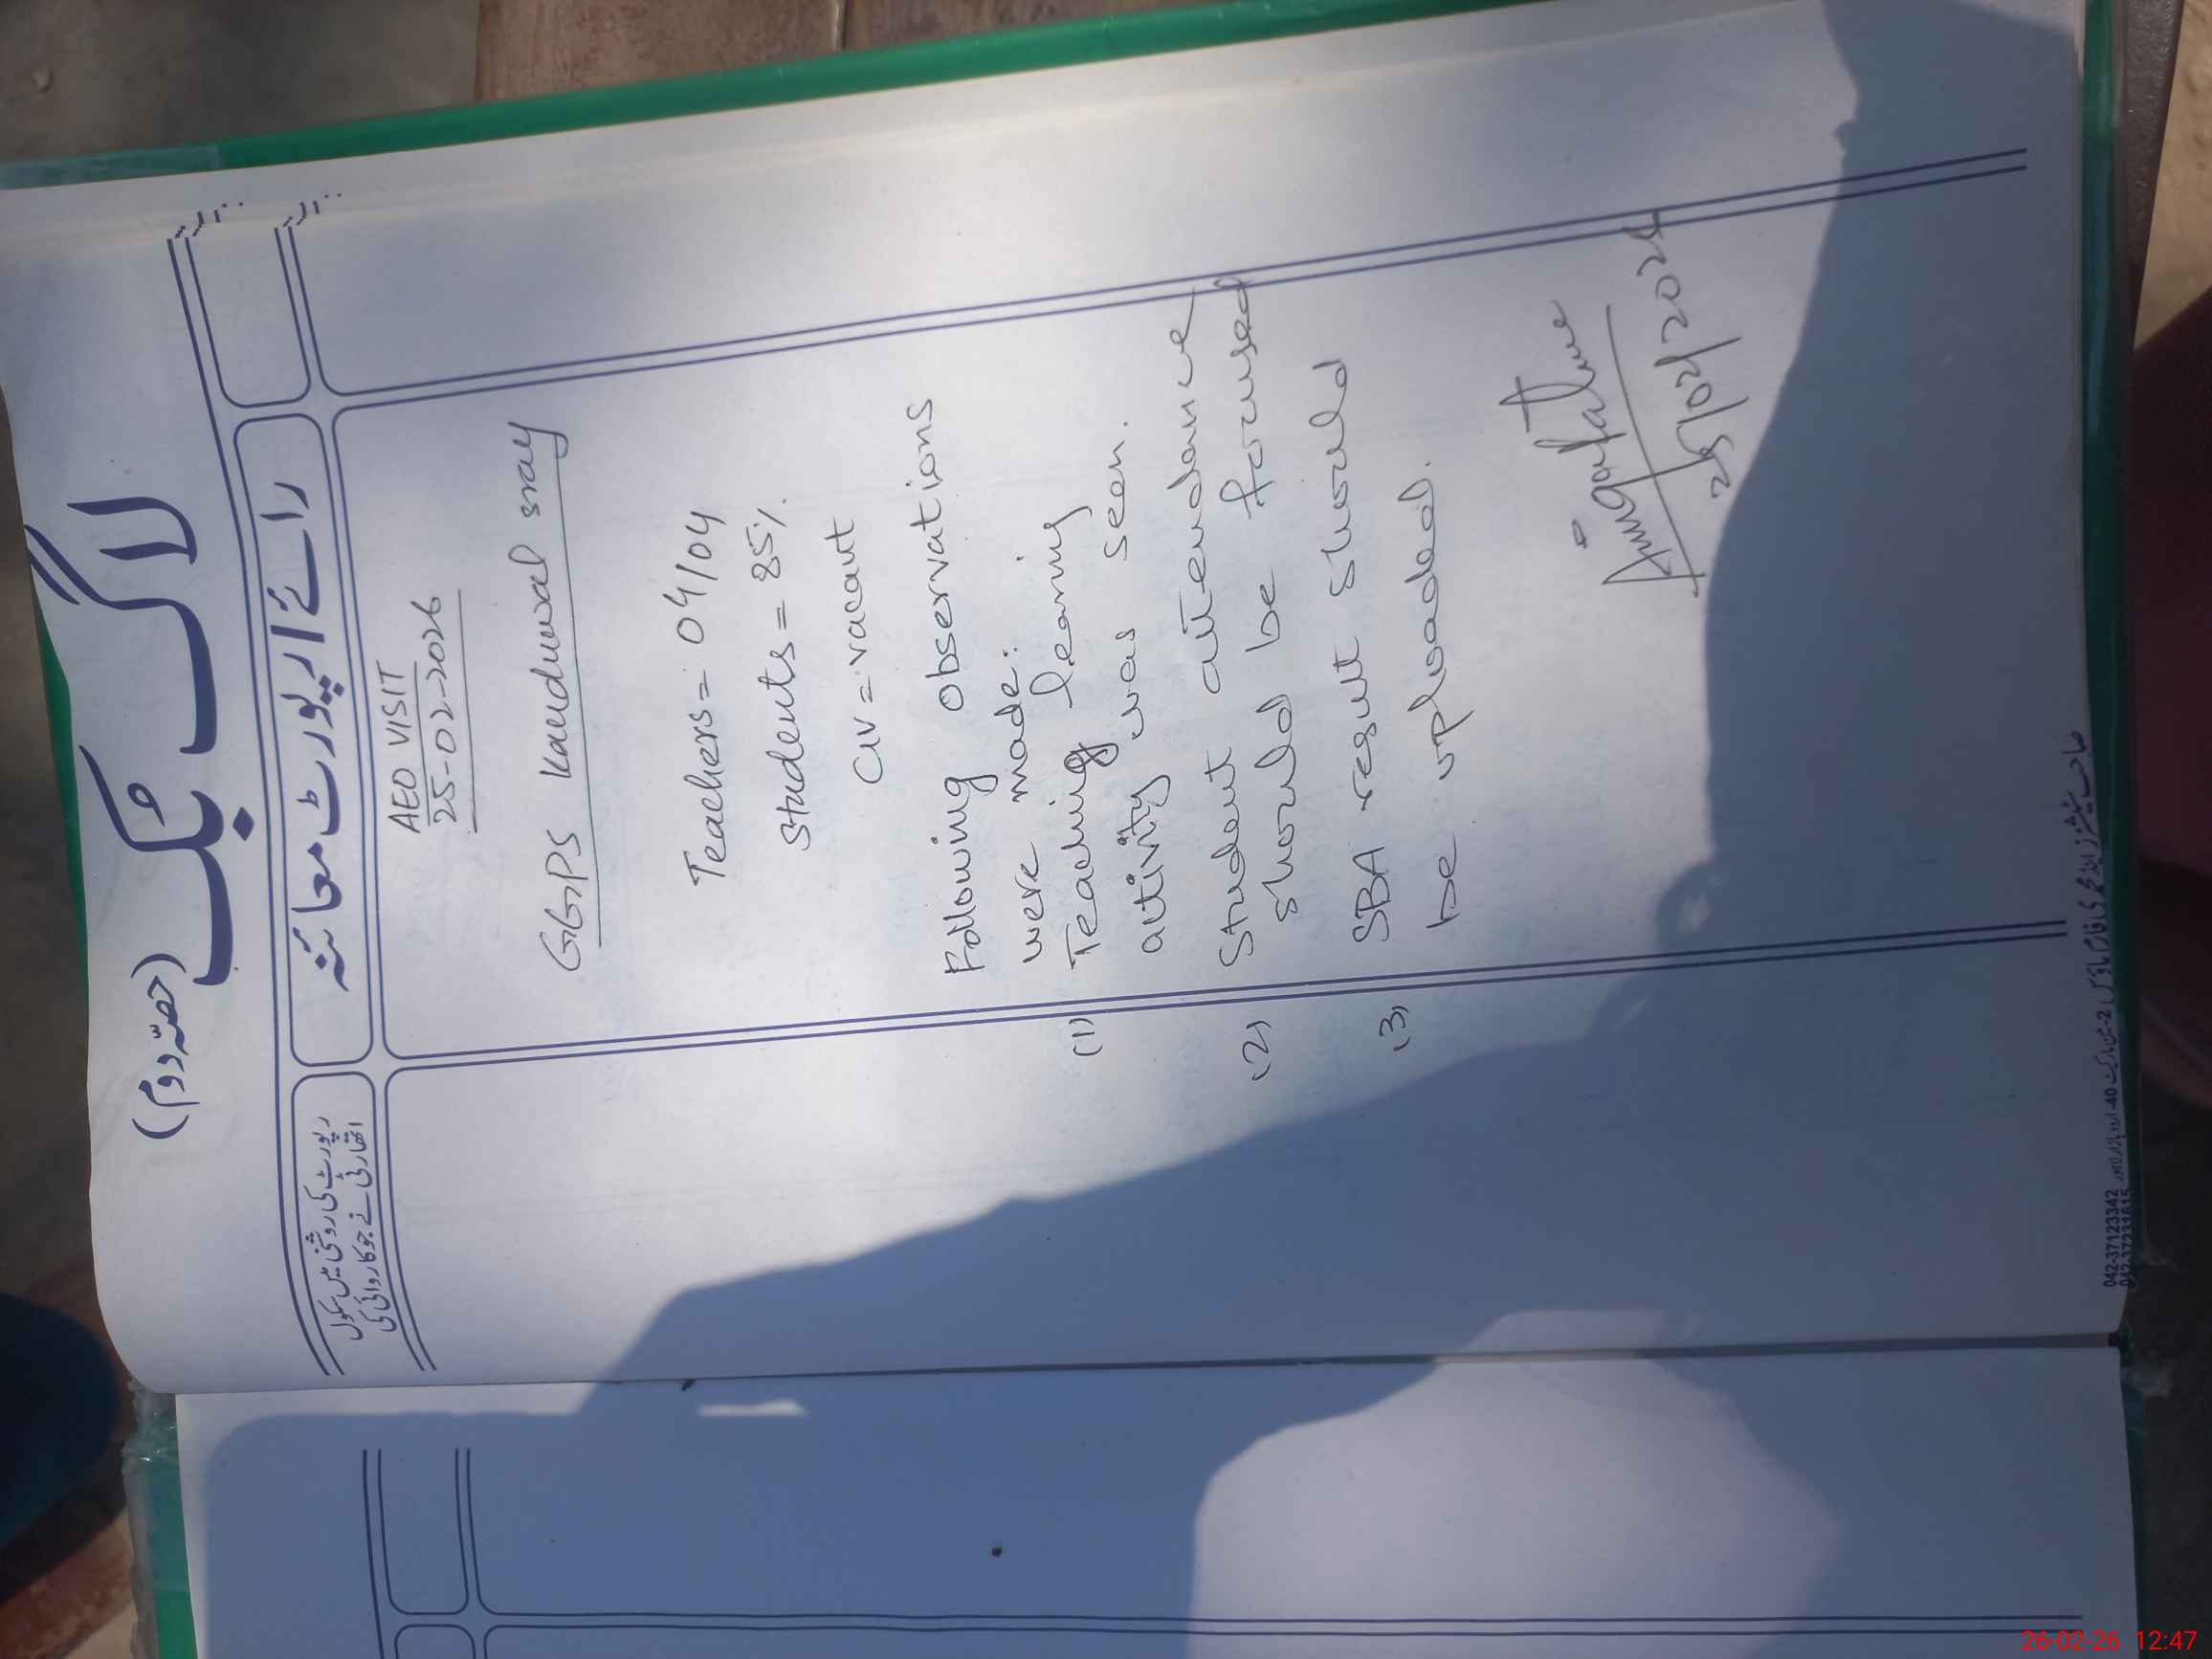 لاگ بُک (حصّہ دوم)
رائے / رپورٹ معائنہ
رپورٹ کی روشنی میں سکول
اتھارٹی نے جو کاروائی کی
AEO VISIT
25-02-2026
GGPS Kanduwal sray
Teachers = 04/04
Students = 85%
CIV = vacant
Following observations
were made:
(1) Teaching learning
activity was seen.
(2) Student attendance
should be focused
(3) SBA result should
be uploaded.
25/02/2026
042-37123342
26-02-26 12:47